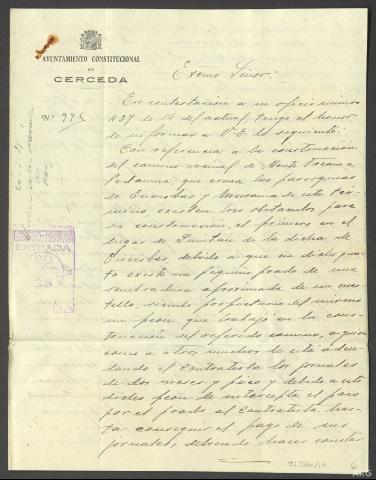 AYUNTAMIENTO CONSTITUCIONAL
DE
CERCEDA
Nº 995
Excmo Señor:
En contestación a su oficio número
437 de 14 del actual, tengo el honor
de informar a V.E. lo siguiente:
Con referencia a la construcción
del camino vecinal de Monte Xocano a
que cruza las parroquias
de y Meirama de este tér-
mino, existen tres obstáculos para
su construcción, el primero en el
lugar de de la dicha de
debido a que en dicho pun-
to existe un pequeño prado de una
sembradura aproximada de un cas-
tello, siendo propietario del mismo
un peón que trabajó en la cons-
trucción del referido camino, a quien
como a otros muchos le está adeu-
dando el contratista los jornales
de dos meses y pico y debido a esto
dicho peón le intercepta el paso
por el prado al contratista has-
ta conseguir el pago de sus
jornales, debiendo hacer constar
ENTRADA
20
6
ARG